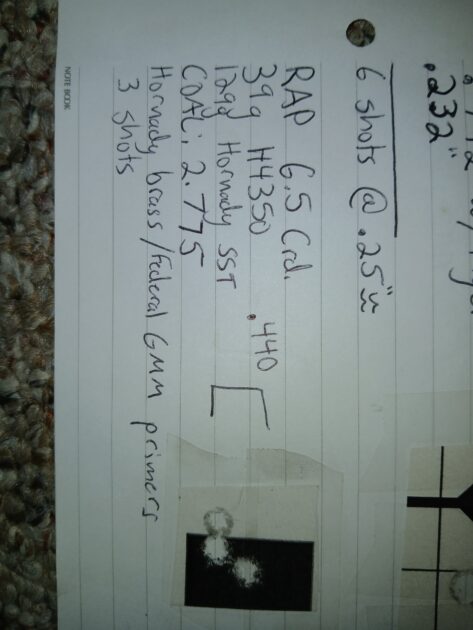 .232"
6 shots @ .25"
RAP 6.5 Crd.
39g H4350 .440
129g Hornady SST
COAL: 2.775
Hornady brass/Federal GMM primers
3 shots
NOTE BOOK